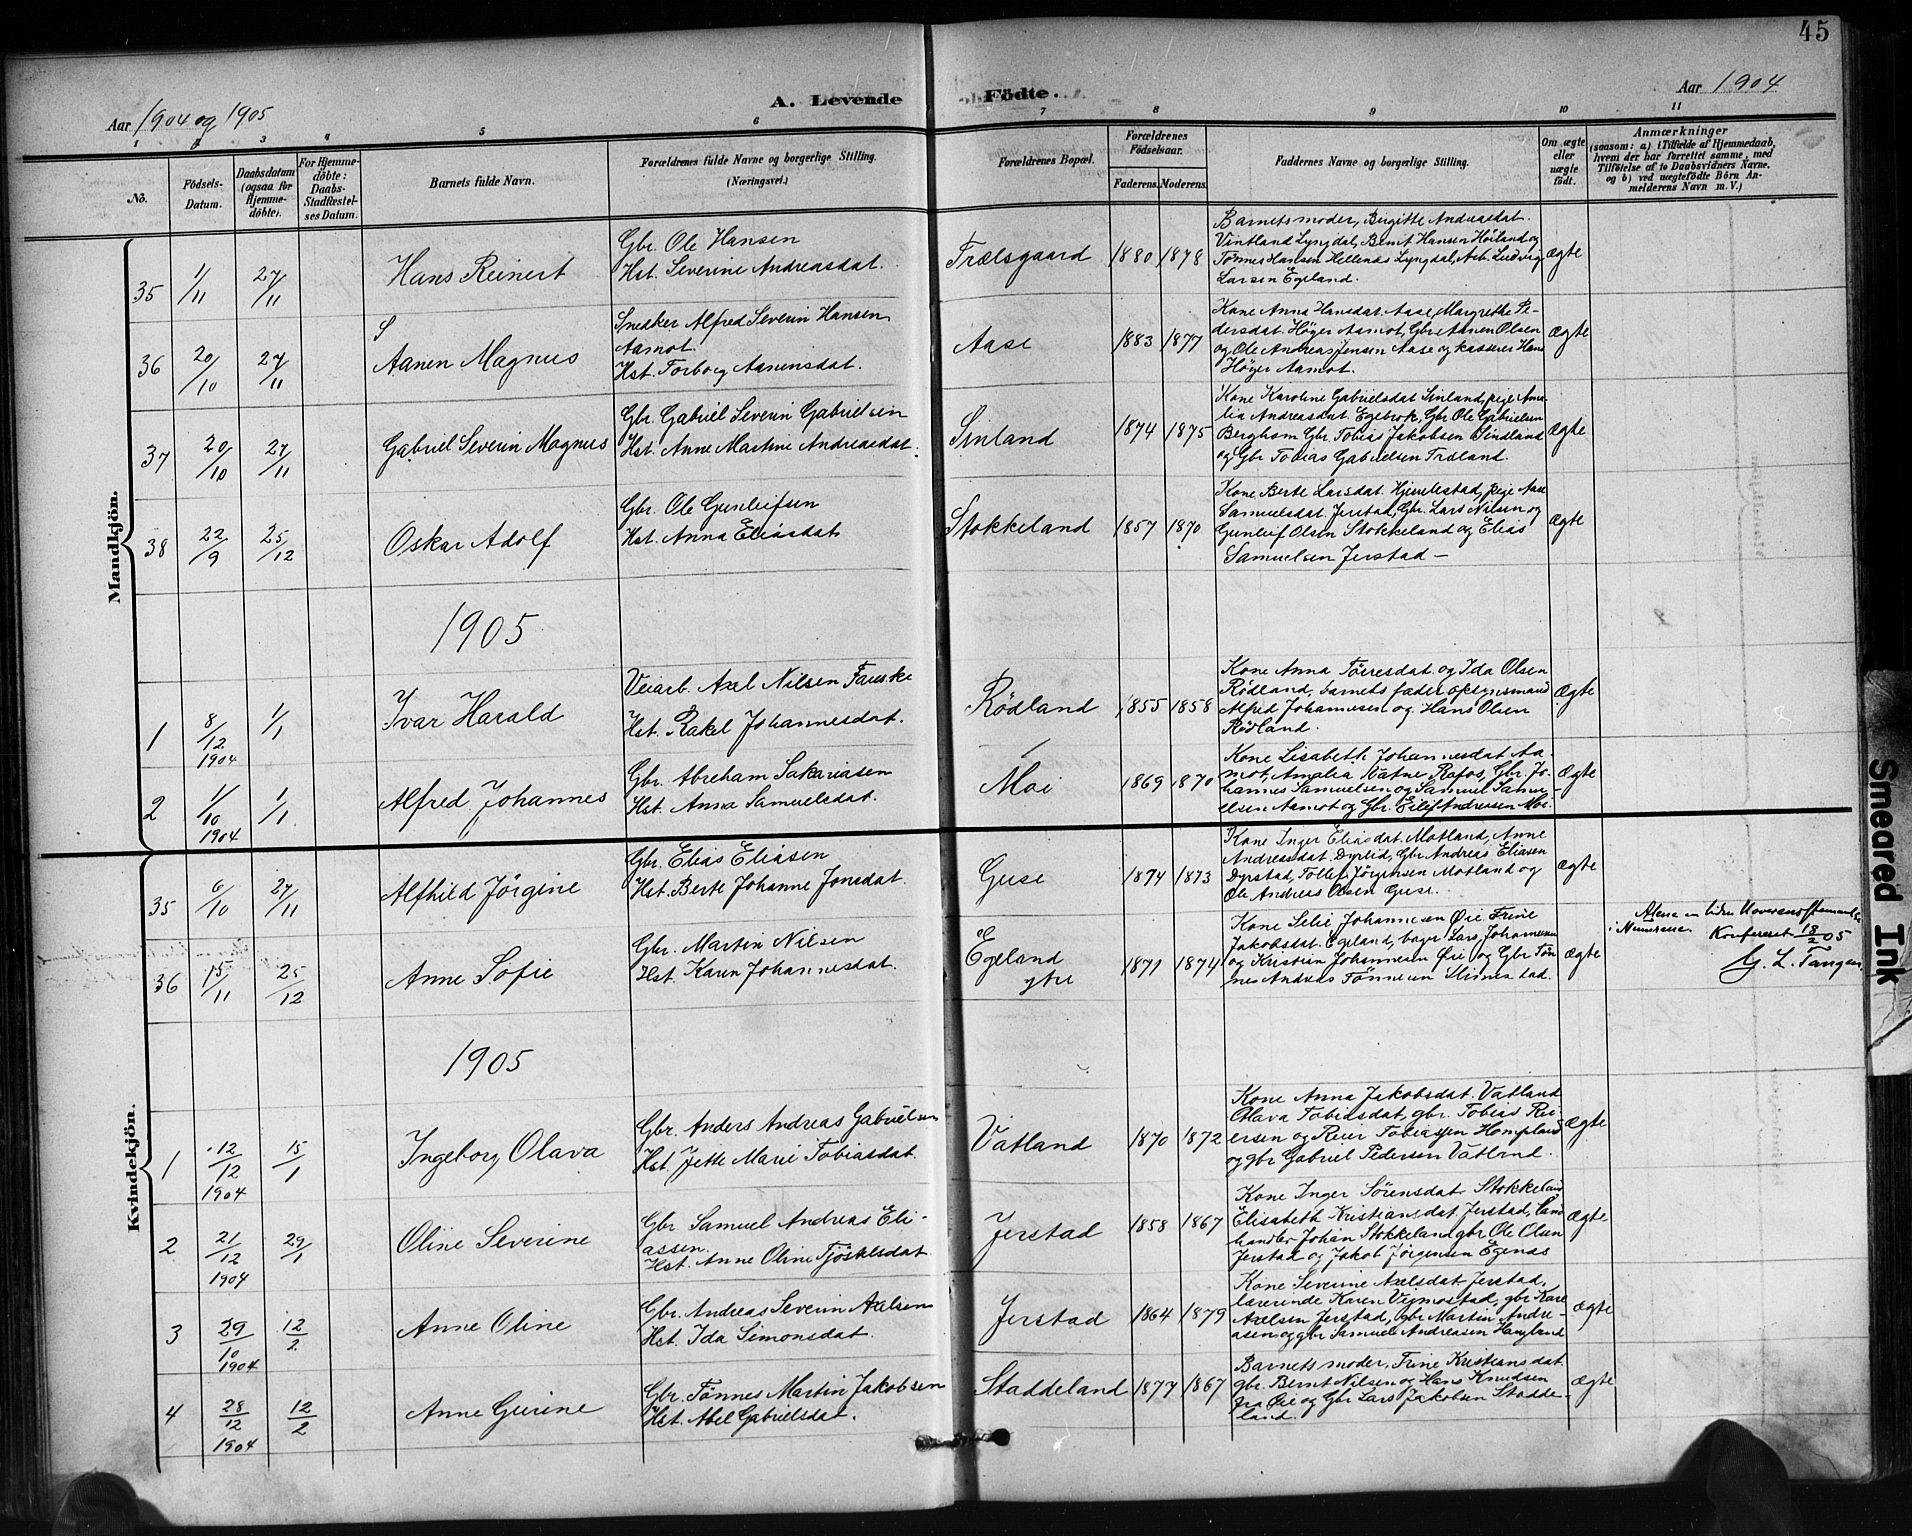 45
Aar 1904 og 1905
A. Levende Födte.
Aar 1904
1 2 3 4 5 6 7 8 9 10 11
No.
Födsels-
Datum.
Daabsdatum
(ogsaa for
Hjemme-
döbte).
For Hjemme-
döbte:
Daabs-
Stadfæstel-
ses Datum.
Barnets fulde Navn.
Forældrenes fulde Navne og borgerlige Stilling.
(Næringsvei.)
Forældrenes Bopæl.
Forældrenes
Födselsaar.
Faderens. Moderens.
Faddernes Navne og borgerlige Stilling.
Om ægte
eller
uægte
födt.
Anmærkninger
(saasom: a) i Tilfælde af Hjemmedaab,
hvem der har forrettet samme, med
Tilföielse af to Daabsvidners Navne.
og b) ved uægtefödte Börn An-
melderens Navn m. V.)
Mandkjön.
35 1/11 27/11 Hans Reinert
Gbr. Ole Hansen
Hst. Severine Andreasdat.
Trælsgaard 1880 1878
Barnets moder, Birgitte Andreasdat.
Vintland Lyngdal, Bernt Hansen Høiland og
Tønnes Hansen Hellenæs Lyngdal, Arb. Ludvig
Larsen Egeland.
Ægte
S
36 20/10 27/11 Aanen Magnus
Snedker Alfred Severin Hansen
Aamot.
Hst. Torborg Aanensdat.
Aase 1883 1877
Kone Anna Hansdat. Aase, Margrethe Pe-
dersdat. Høyer Aamot, Gbr. Aanen Olsen
og Ole Andreas Jensen Aase og kasserer Hans
Höyer Aamot.
Ægte
37 20/10 27/11 Gabriel Severin Magnus
Gbr. Gabriel Severin Gabrielsen
Hst. Anne Martine Andreasdat.
Sinland 1874 1875
Kone Karoline Gabrielsdat Sinland, pige Ama-
lia Andreasdat. Egebrok, Gbr Ole Gabrielsen
Berghom Gbr. Tobias Jakobsen Sindland
og Gbr Tobias Gabrielsen Træland.
Ægte
38 22/9 25/12 Oskar Adolf
Gbr. Ole Gunleifsen
Hst. Anna Eliasdat
Stokkeland 1857 1870
Kone Berte Larsdat. Hjemlestad, pige Aase
Samuelsdat. Jerstad, Gbr. Lars Nilsen og
Gunleif Olsen Stokkeland og Elias
Samuelsen Jerstad —
Ægte
1905
1 8/12 1904 1/1 Ivar Harald
Veiarb. Axel Nilsen Fauske
Hst. Rakel Johannesdat.
Rödland 1855 1858
Kone Anna Törresdat og Ida Olsen
Rødland, barnets fader opsynsmand
Alfred Johannesen og Hans Olsen
Rödland.
Ægte
2 1/10 1904 1/1 Alfred Johannes
Gbr. Abraham Sakariasen
Hst. Anna Samuelsdat.
Moi 1869 1870
Kone Lisabeth Johannesdat Aa-
mot, Amalia Rafos, Gbr. Jo-
hannes Samuelsen og Samuel Samu-
elsen Aamot og Gbr. Eilef Andreasen Moi.
Ægte
Kvindekjön.
35 6/10 27/11 Alfhild Jörgine
Gbr. Elias Eliasen
Hst. Berte Johanne Jonsdat.
Guse 1874 1873
Kone Inger Eliasdat. Motland, Anne
Andreasdat. Dyrlid, Gbr Andreas Eliasen
Dyrstad, Tollef Jörgensen Motland og
Ole Andreas Olsen Guse.
Ægte
36 15/11 25/12 Anne Sofie
Gbr. Martin Nilsen
Hst. Karen Johannesdat.
Egeland
ytre
1871 1874
Kone Selie Johannesen Øie Trine
Jakobsdat. Egeland, bager Lars Johannesen
og Kristian Johannesen Øie og Gbr Tön-
nes Andreas Tönnesen
Ægte
en liden Uoverensstemmelse
i Numrene. Konfereret 18/2 05
G. L. Tangen
1905
1 12/12 1904 15/1 Ingeborg Olava
Gbr. Anders Andreas Gabrielsen
Hst. Jette Marie Tobiasdat.
Vatland 1870 1872
Kone Anna Jakobsdat. Vatland
Olava Tobiasdat, gbr. Tobias Rei-
ersen og Reier Tobiassen Hompland
og gbr Gabriel Pedersen Vatland.
Ægte
2 21/12 1904 29/1 Oline Severine
Gbr Samuel Andreas Eli-
assen
Hst. Anne Oline Tjöstelsdat
Jerstad 1858 1867
Kone Inger Sörensdat. Stokkeland
Elisabeth Kristiansdat. Jerstad, lan
handler Johan Stokkeland gbr Ole Olsen
Jerstad og Jakob Jørgensen Egenæs
Ægte
3 29/10 1904 12/2 Anne Oline
Gbr. Andreas Severin Axelsen
Hst. Ida Simonsdat.
Jerstad 1864 1879
Kone Severine Axelsdat. Jerstad,
lærerinde Karen Vigmostad, gbr Kare
Axelsen Jerstad, gbr Martin Andre-
asen og gbr Samuel Andreasen Haugland
ægte
4 28/12 1904 12/2 Anne Gurine
Gbr. Tönnes Martin Jakobsen
Hst. Abel Gabrielsdat.
Staddeland 1877 1867
Barnets moder, Trine Kristiansdat.
gbr. Bernt Nilsen og Hans Knudsen
fra Øie og Gbr Lars Jakobsen Stadde-
land.
Ægte
Smeared Ink